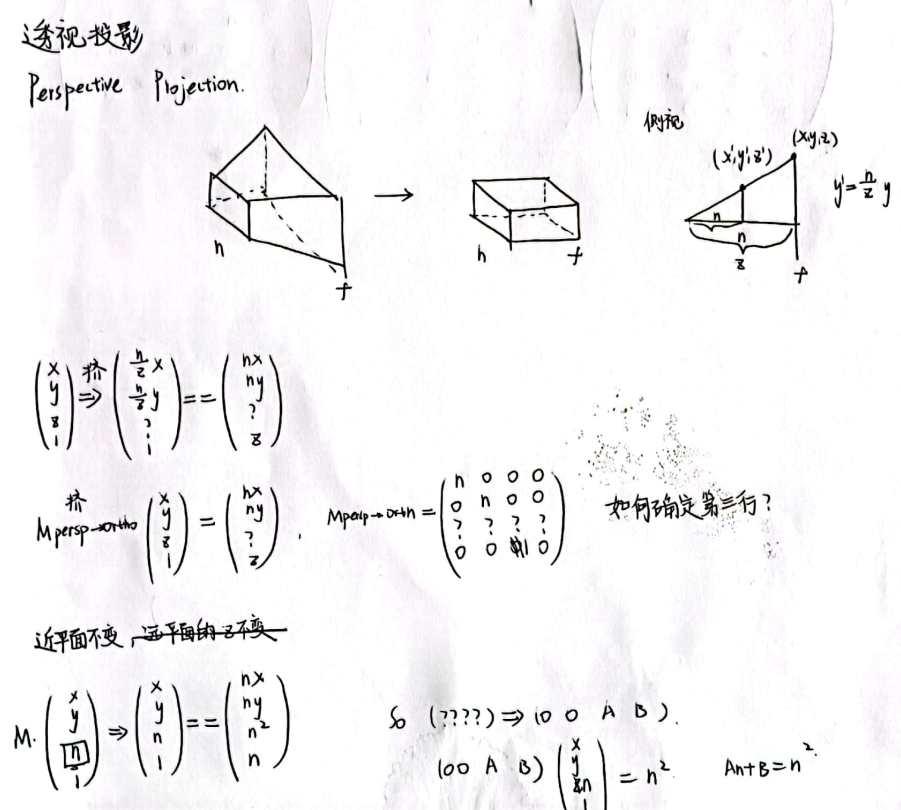 透视投影
Perspective Projection.
侧视
(x,y,z)
(x',y',z')
y' = n/z y
n
n
z
f
n
f
n
f
(x y z 1) 挤 ⇒ (n/z x n/z y ? 1) == (nx ny ? z)
挤
M persp→ortho (x y z 1) = (nx ny ? z) , M persp→ortho = (n 0 0 0
0 n 0 0
? ? ? ?
0 0 1 0) 如何确定第三行?
近平面不变, 远平面的z不变
M. (x y n 1) ⇒ (x y n 1) == (nx ny n² n)
So (????) ⇒ (0 0 A B).
(0 0 A B) (x y n 1) = n² An+B=n².